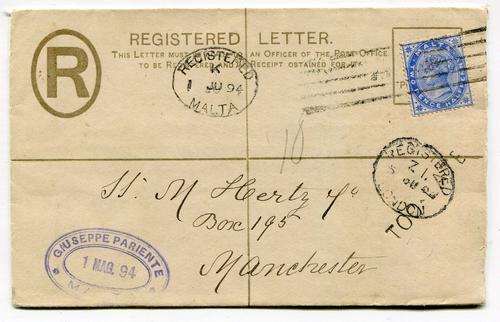 REGISTERED LETTER.
THIS LETTER MUST AN OFFICER OF THE POST OFFICE
TO BE REGISTERED AND RECEIPT OBTAINED FOR IT.
R
REGISTERED
K
1 JU 94
MALTA
MALTA
PENCE HALF
REGISTERED
LONDON
18
M Hertz
Box 195
Manchester
GIUSEPPE PARIENTE
1 MAG. 94
MALTA